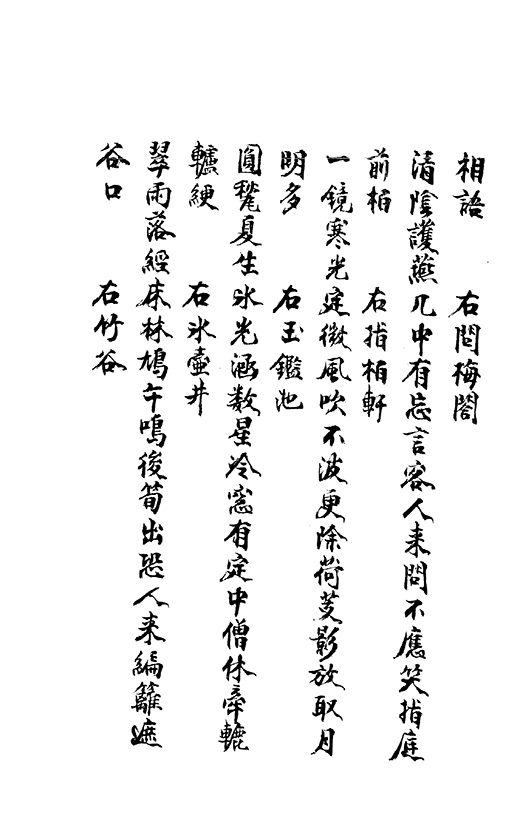 相語　右問梅閣
清陰護燕几中有忘言客人来問不應笑指庭
前栢　右指栢軒
一鏡寒光定微風吹不波更除荷芰影放取月
明多　右玉鑑池
圓甃夏生氷光涵数星冷窓有定中僧休牽轆
轤綆　右氷壷井
翠雨落經床林鳩午鳴後筍出恐人来編籬遮
谷口　右竹谷